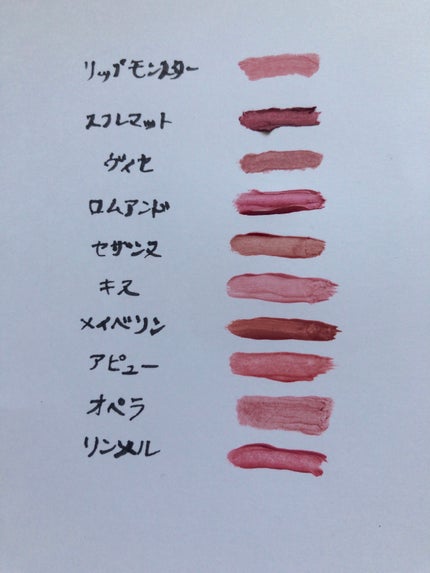 リップモンスター
スフレマット
ヴィセ
ロムアンド
セザンヌ
キス
メイベリン
アピュー
オペラ
リンメル